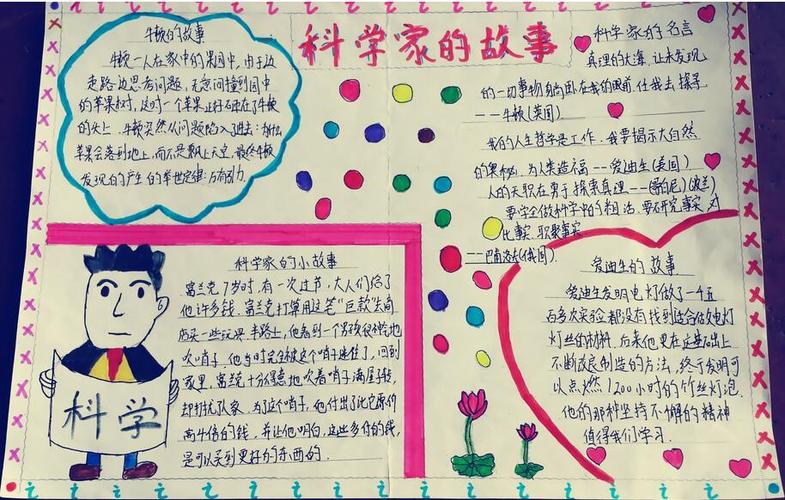 科学家的故事
牛顿的故事
牛顿一人在家中的果园中,由于边
走路边思考问题,无意间撞到园中
的苹果树,这时一个苹果正好砸在了牛顿
的头上.牛顿突然从问题陷入了进去:为什么
苹果会落到地上,而不是飘上天空.最终牛顿
发现的产生的举世定律:万有引力.
科学家的名言
真理的大海,让未发现
的一切事物躺卧在我的眼前,任我去探寻
——牛顿(英国)
我的人生哲学是工作,我要揭示大自然
的奥秘,为人类造福——爱迪生(美国)
人的天职在勇于探索真理——(哥白尼)(波兰)
要学会做科学中的粗活.要研究事实,对
比事实,积聚事实
——巴甫洛夫(俄国)
科学家的小故事
富兰克7岁时,有一次过节,大人们给了
他许多钱.富兰克打算用这笔"巨款"去商
店买一些玩具.半路上,他看到一个男孩很神气地
吹哨子,他当时完全被这个哨子迷住了,回到
家里,富兰克十分得意地吹着哨子满屋转,
却打扰了家人.为了这个哨子,他付出了比它原价
高4倍的钱,并让他明白,这些多付的钱,
是可以买到更好的东西的.
科学
爱迪生的故事
爱迪生发明电灯做了一千五
百多次实验都没有找到适合做电灯
灯丝的材料,后来他更在这基础上
不断改良制造的方法,终于发明可
以点燃1200小时的竹丝灯泡.
他的那种坚持不懈的精神
值得我们学习.